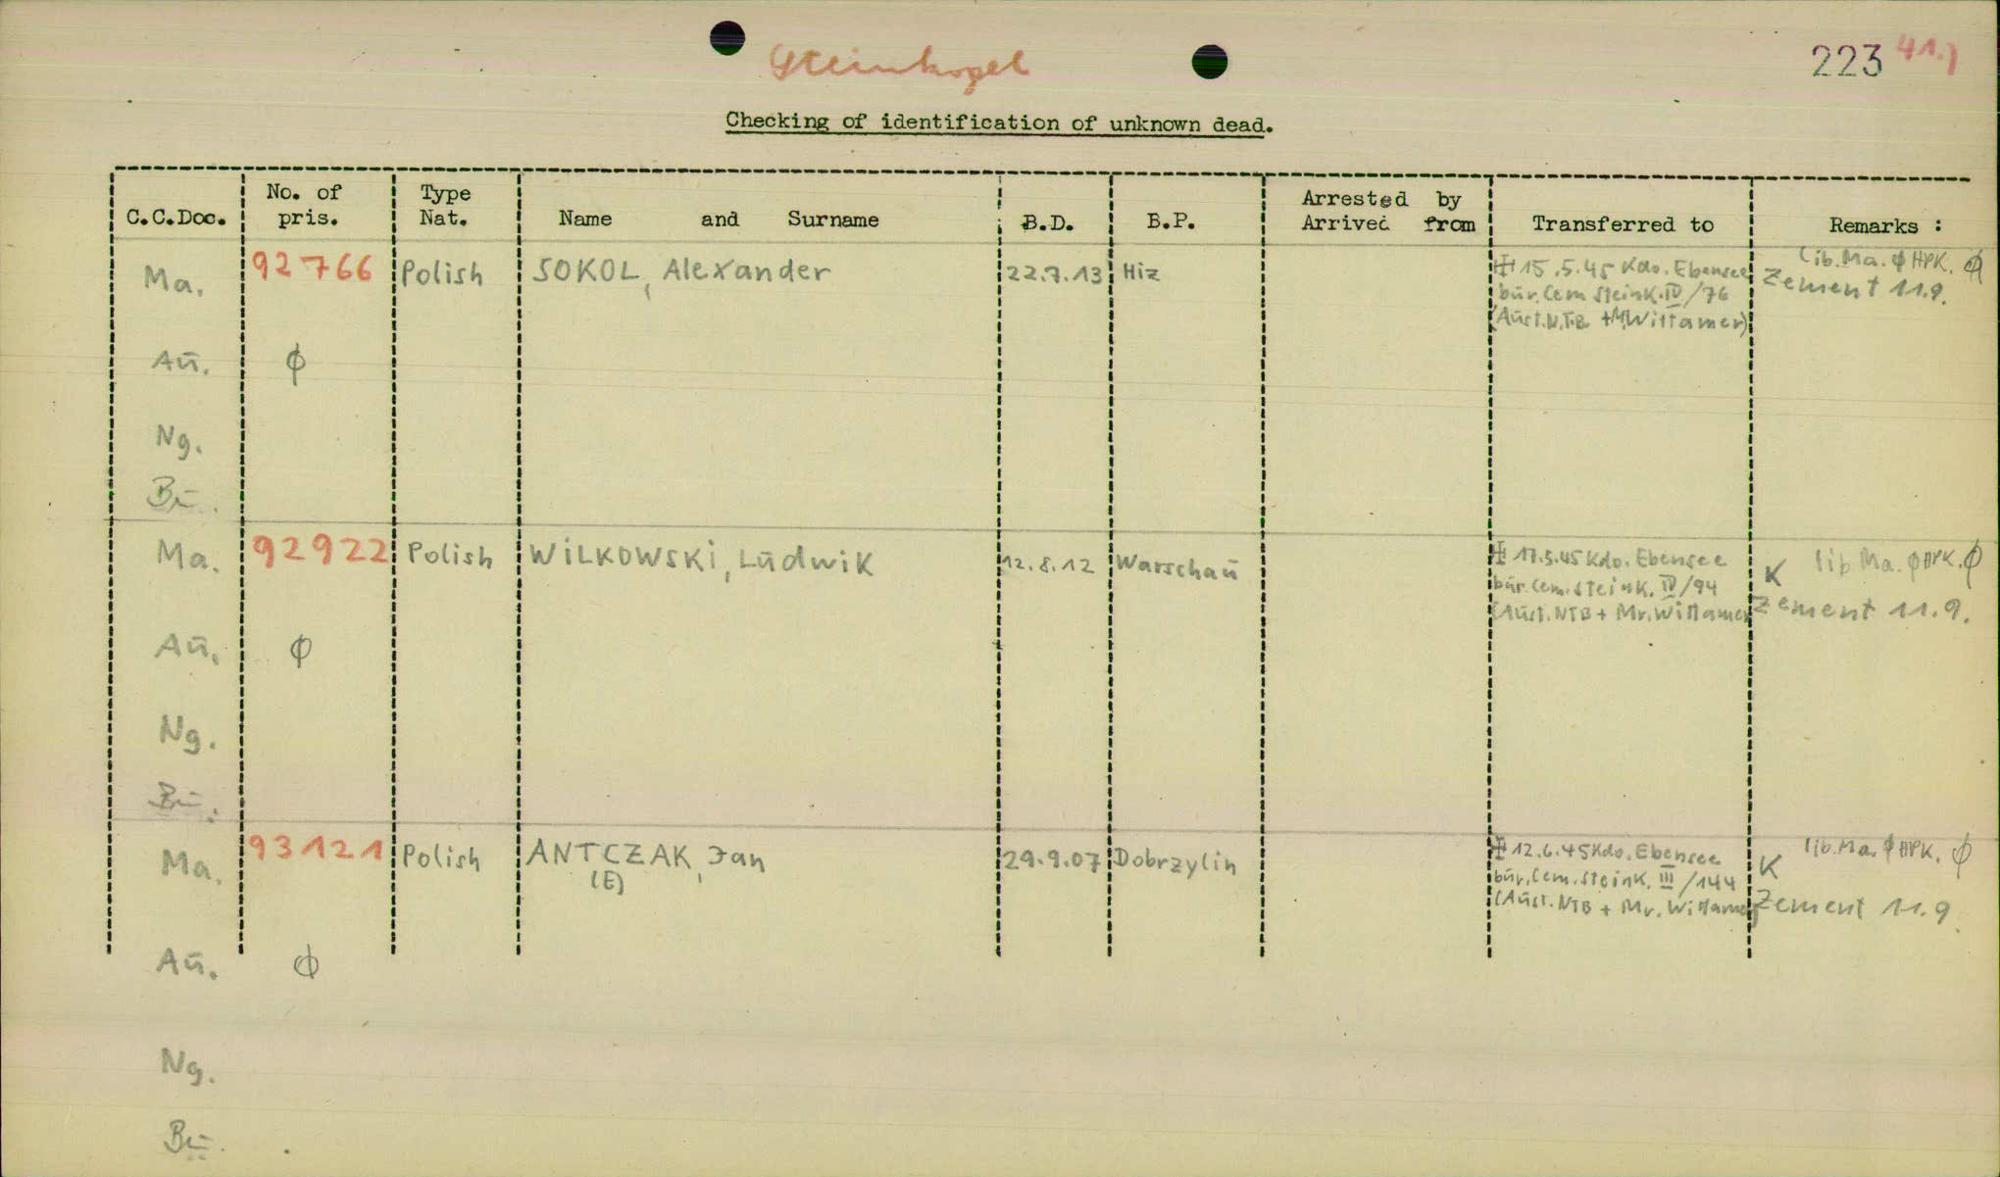 Steinkogel
223 41.)
Checking of identification of unknown dead.
C.C.Doc. No. of pris. Type Nat. Name and Surname B.D. B.P. Arrested by Arrived from Transferred to Remarks :
Ma. 92766 Polish SOKOL, Alexander 22.7.13 Hiz
15.5.45 Kdo. Ebensee
bür. Cem SteinK. IV/76
(Aüst. N.T.B + M. Wittamer)
lib. Ma. ϕ HPK. ϕ
Zement 11.9.
Aü. ϕ
Ng.
Bü.
Ma. 92922 Polish WILKOWSKI, Lüdwik 12.8.12 Warschaü
17.5.45 Kdo. Ebensee
bür. Cem. SteinK. IV/94
(Aüst. NTB + Mr. Wittamer
K lib Ma. ϕ HPK. ϕ
Zement 11.9.
Aü. ϕ
Ng.
Bü.
Ma. 93121 Polish ANTCZAK, Jan 29.9.07 Dobrzylin
(E)
12.6.45 Kdo. Ebensee
bür. Cem. SteinK. III/144
(Aüst. NTB + Mr. Wittamer
K lib. Ma. ϕ HPK. ϕ
Zement 11.9.
Aü. ϕ
Ng.
Bü.